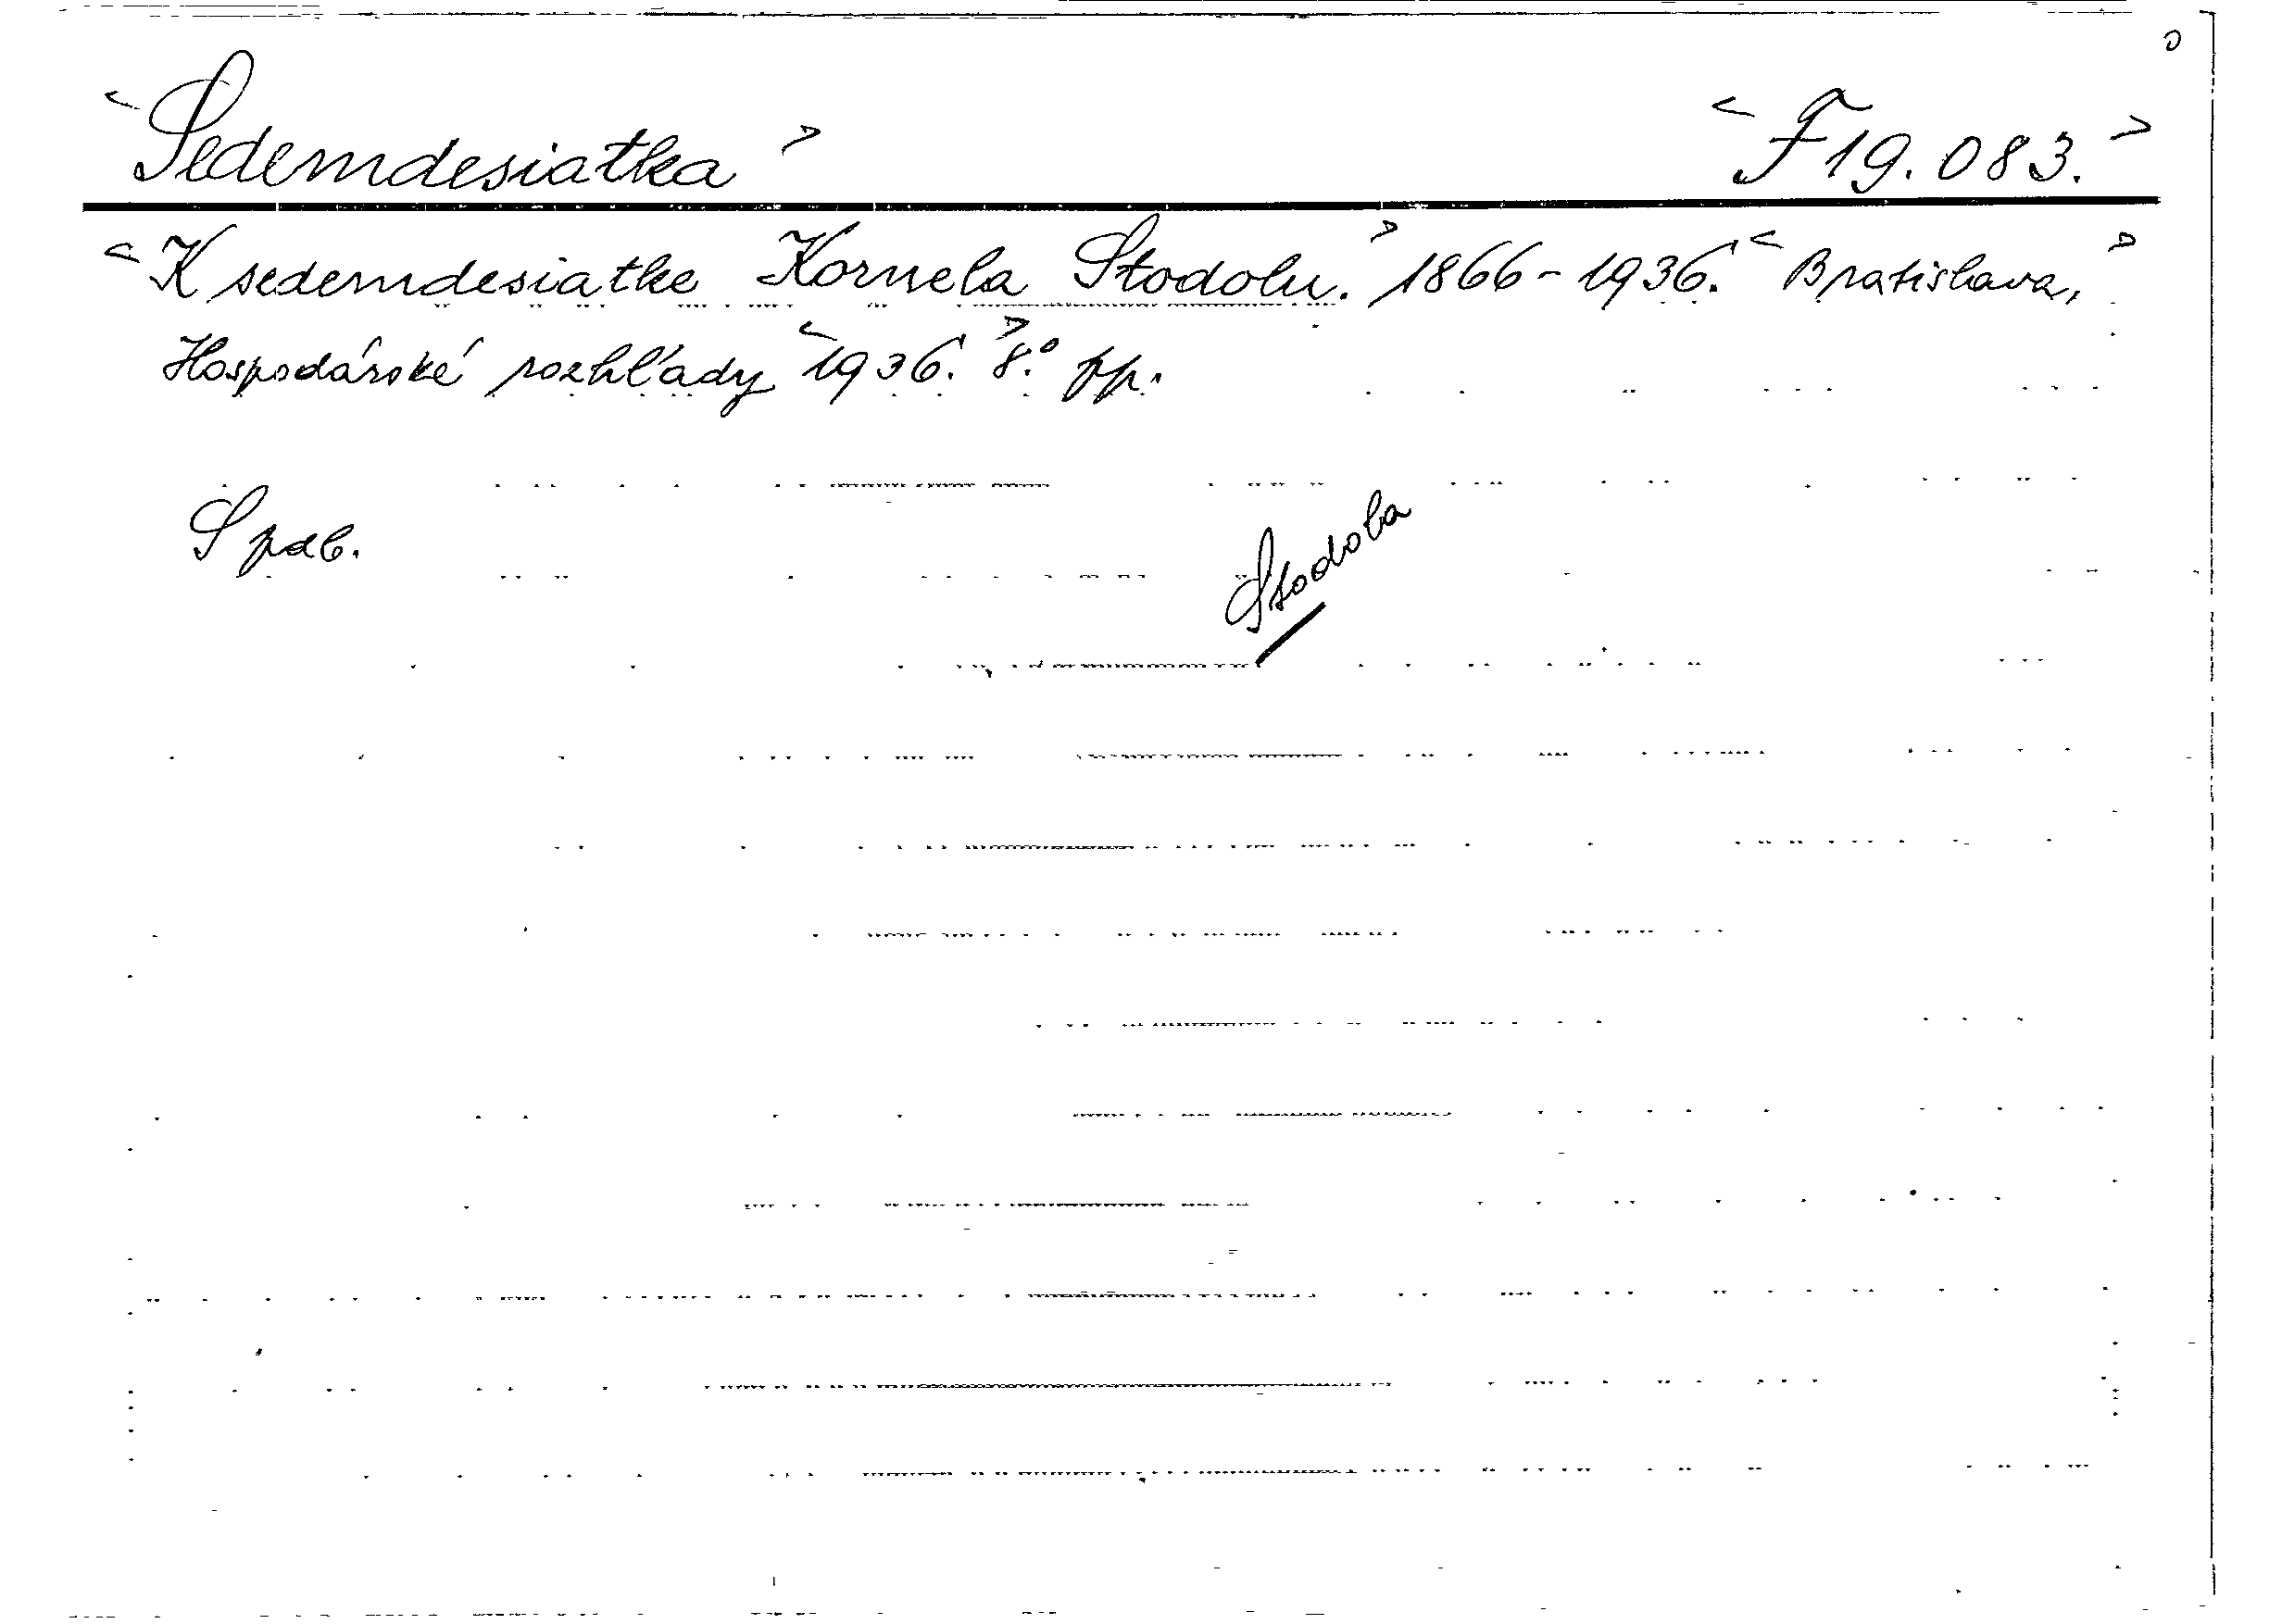 <Sedemdesiatka> <F19.083.>
<K sedemdesiatke Kornela Stodolu.> 1866-1936. <Bratislava,>
Hospodárské rozhľady <1936.> 8.° pp.
S pdb.
Stodola